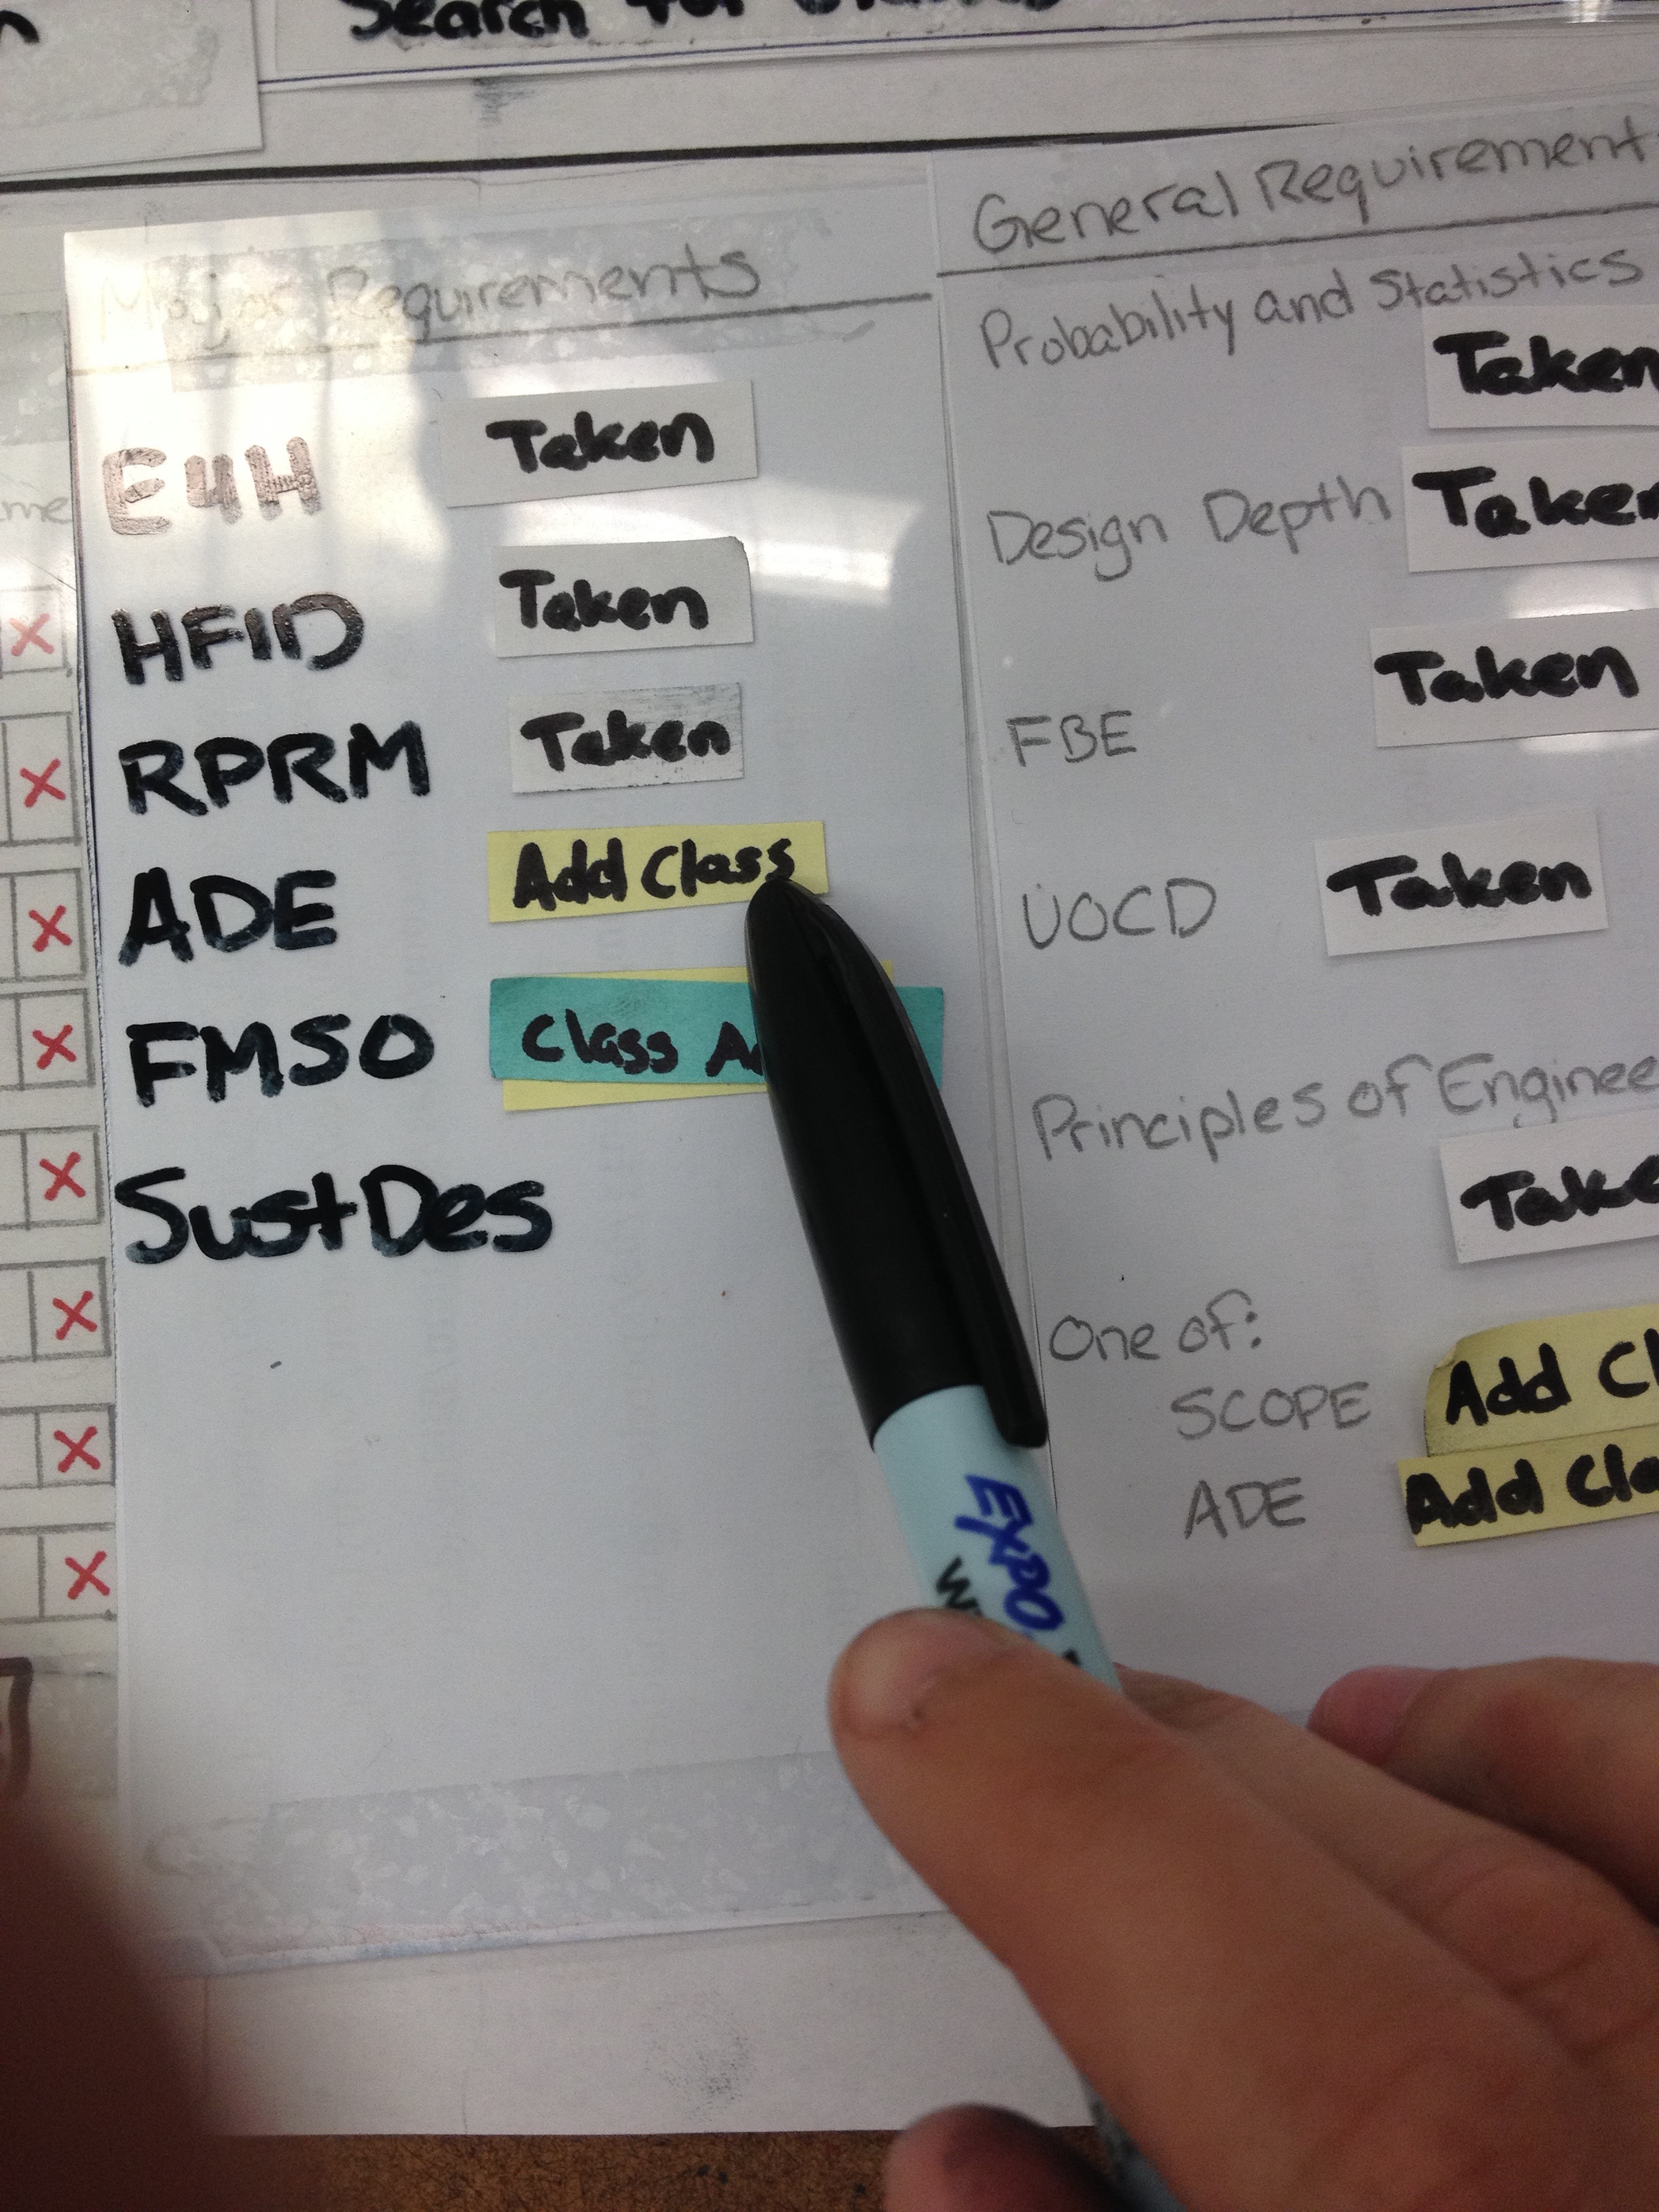 Search for
Major Requirements
E4H Taken
HFID Taken
RPRM Taken
ADE Add Class
FMSO Class
SustDes
General Requirement
Probability and Statistics
Taken
Design Depth Taken
FBE Taken
UOCD Taken
Principles of Enginee
Take
One of:
SCOPE Add Cl
ADE Add Cla
me
X
X
X
X
X
X
X
X
EXPO